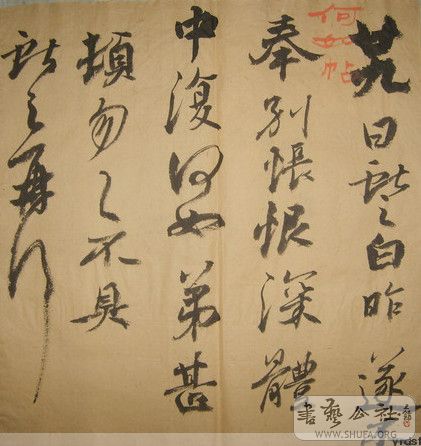 何如帖
廿九日獻之白昨遂
奉別悵恨深體
中復何如弟甚
頓勿々不具
獻之再拜
書藝公社
WWW.SHUFA.ORG